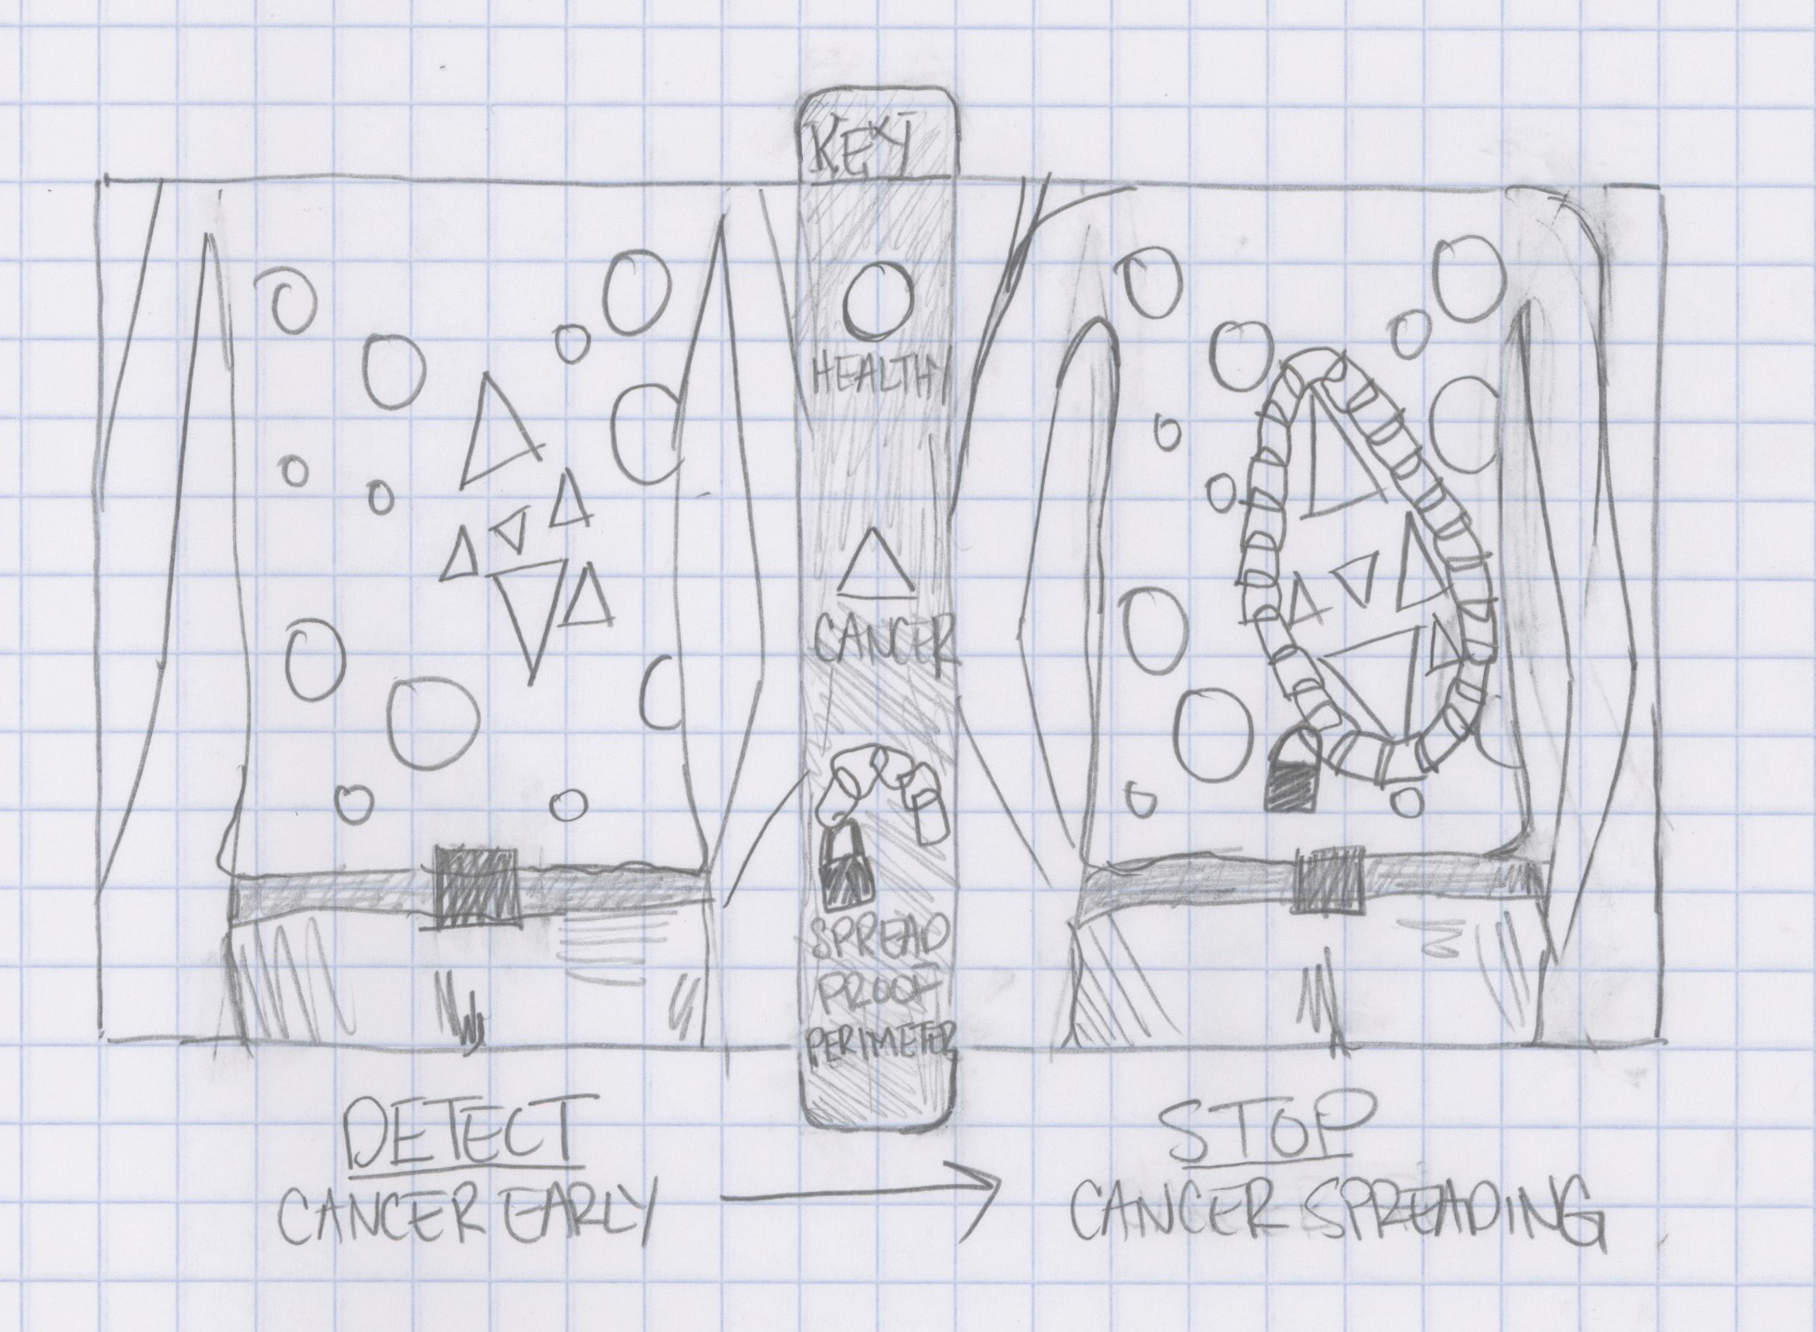 KEY
HEALTHY
CANCER
SPREAD
PROOF
PERIMETER
DETECT
CANCER EARLY
STOP
CANCER SPREADING